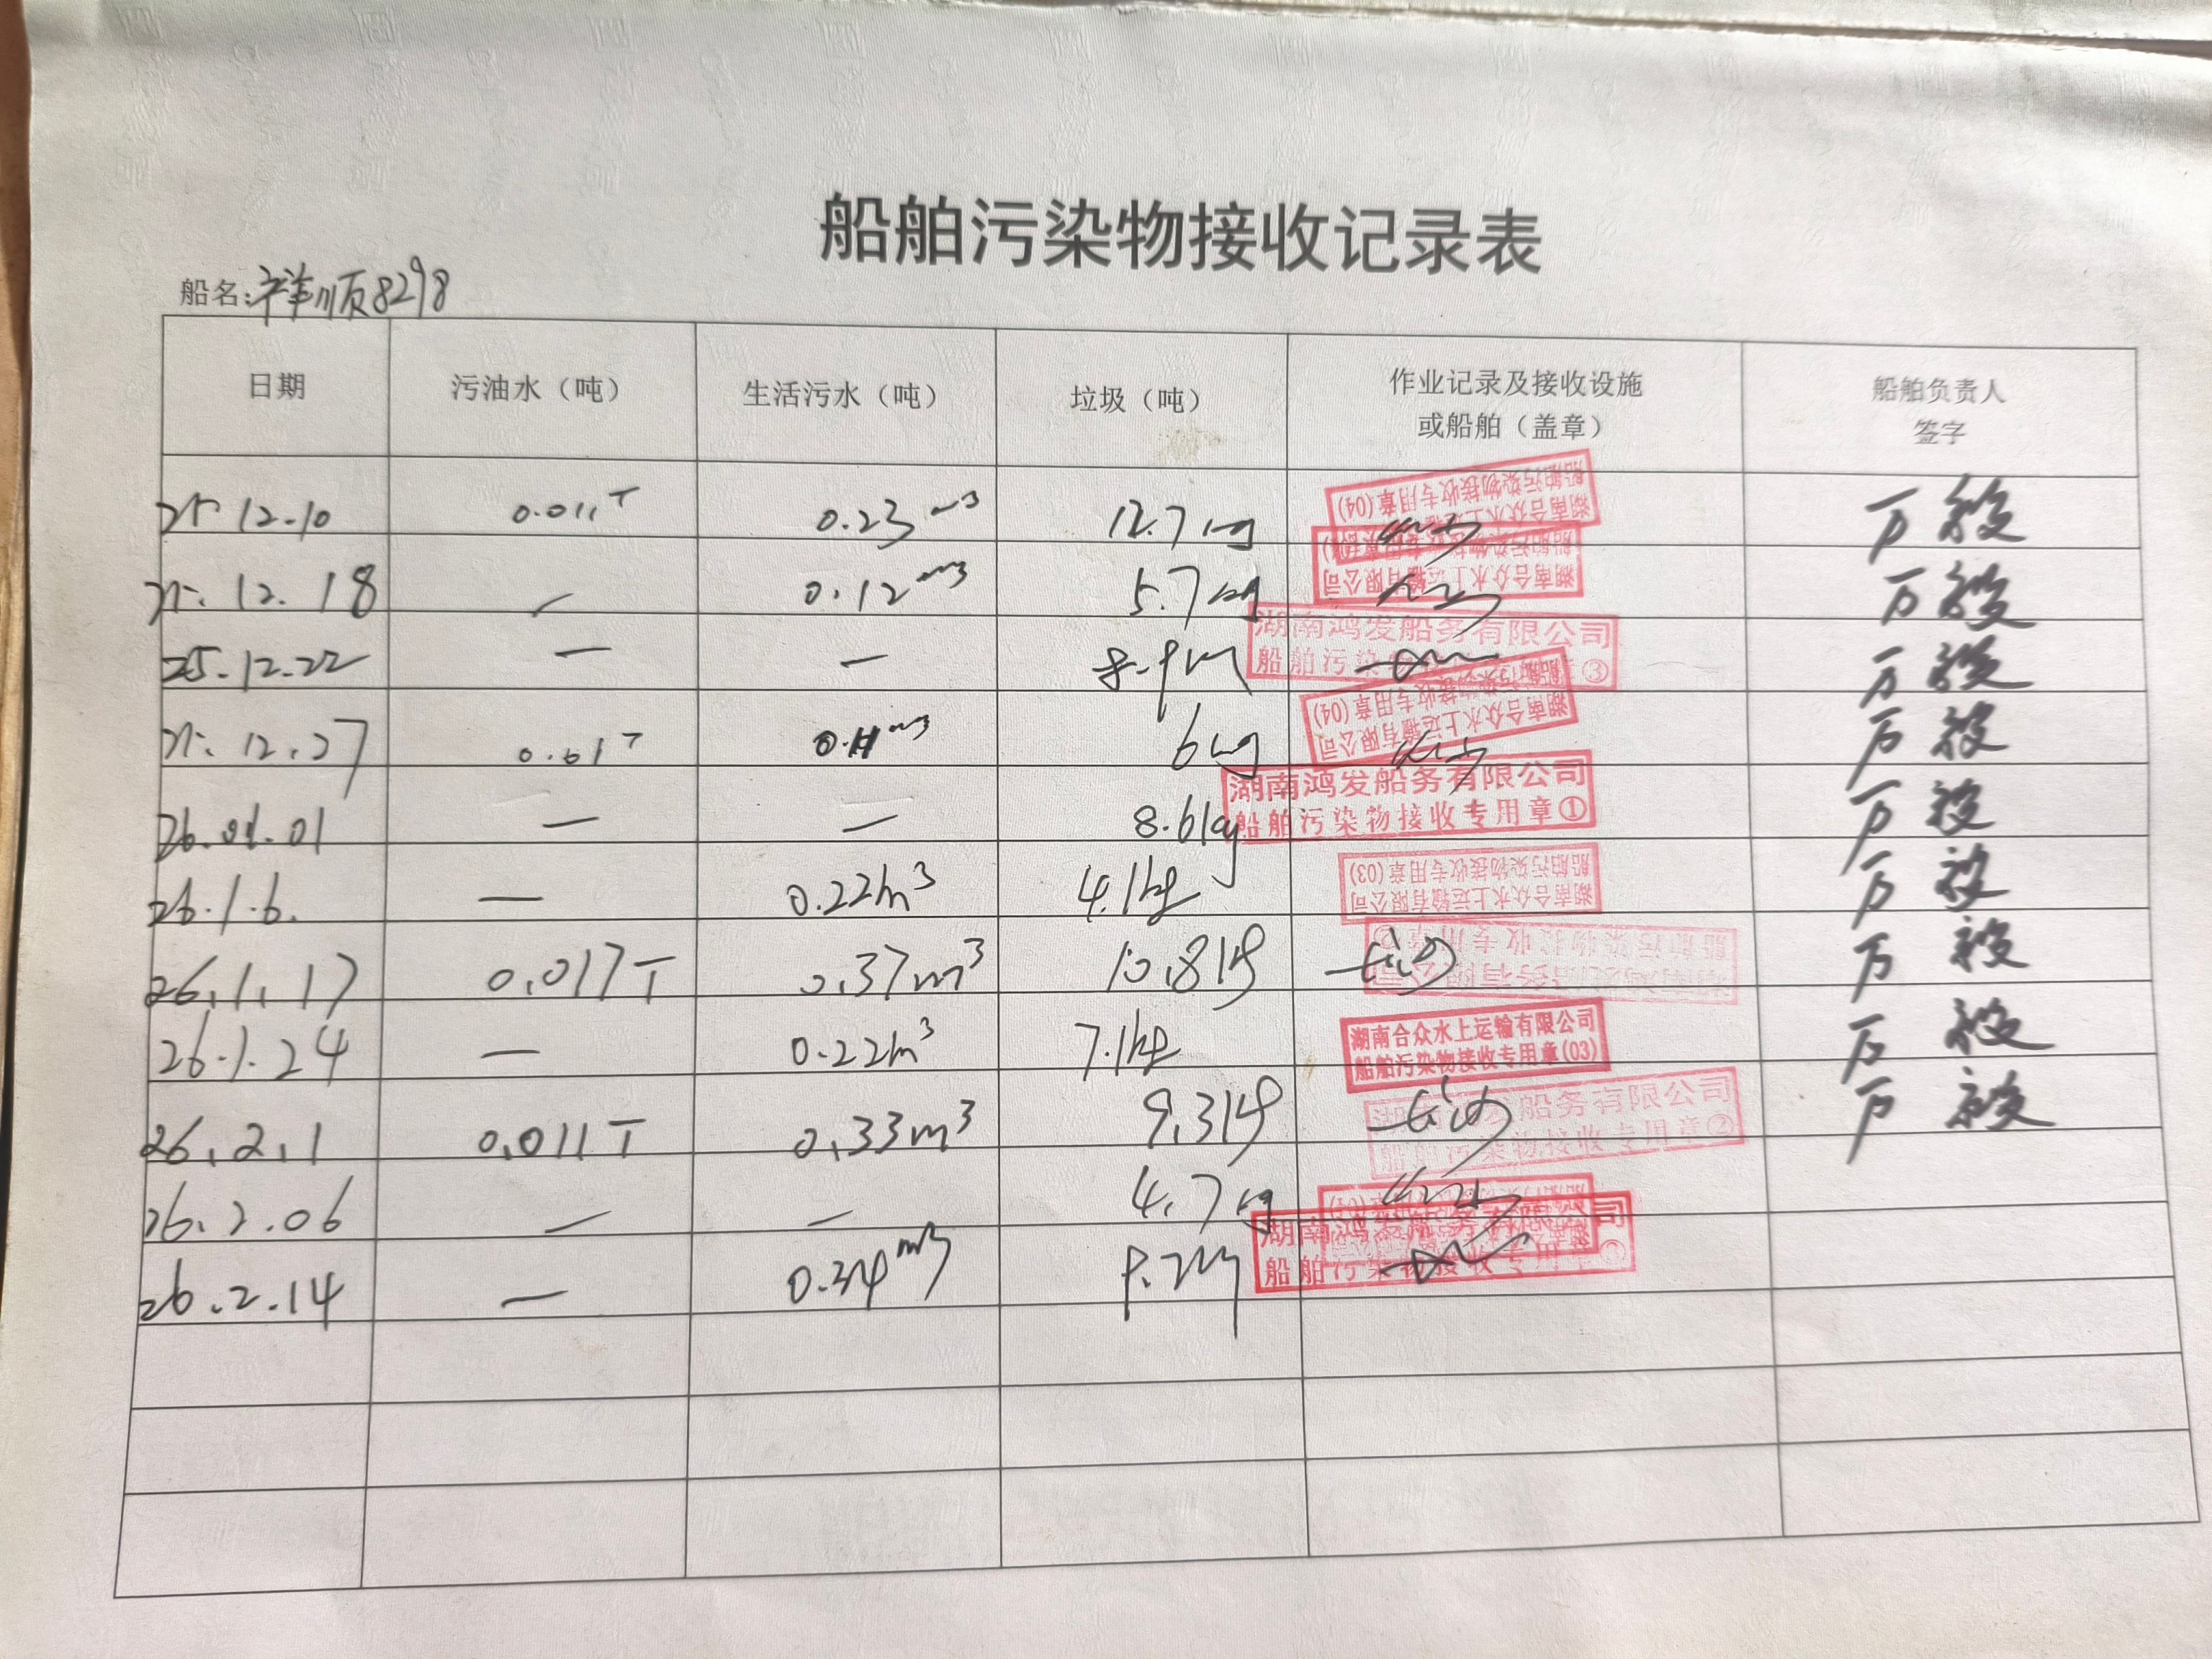 船舶污染物接收记录表
船名:祥顺8298
日期 污油水（吨） 生活污水（吨） 垃圾（吨） 作业记录及接收设施 或船舶（盖章） 船舶负责人 签字
25.12.10 0.011T 0.23m3 12.7kg 湖南合众水上运输有限公司 船舶污染物接收专用章(04) 万
25.12.18 — 0.12m3 5.7kg 湖南合众水上运输有限公司 万
25.12.22 — — 8.9kg 湖南鸿发船务有限公司 船舶污染 章③ 万
25.12.27 0.01T 0.11m3 6kg 湖南合众水上运输有限公司 船舶污染物接收专用章(04) 万
26.01.01 — — 8.6kg 湖南鸿发船务有限公司 船舶污染物接收专用章① 万
26.1.6. — 0.22m3 4.1kg 湖南合众水上运输有限公司 船舶污染物接收专用章(03) 万
26.1.17 0.017T 0.37m3 10.8kg 船舶污染物接收专用章② 万
26.1.24 — 0.22m3 7.1kg 湖南合众水上运输有限公司 船舶污染物接收专用章(03) 万
26.2.1 0.011T 0.33m3 9.3kg 湖 发船务有限公司 船舶污染物接收专用章② 万
26.2.06 — — 4.7kg
26.2.14 — 0.34m3 9.2kg 湖南鸿发船务有限公司 船舶污染物接收专用章